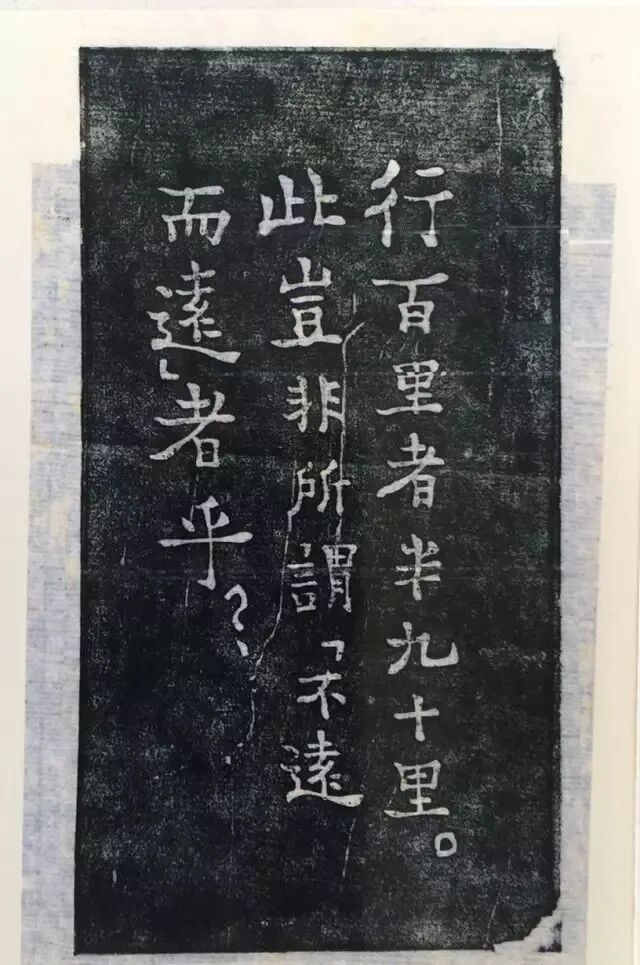 行百里者半九十里。
此豈非所謂「不遠
而遠」者乎?